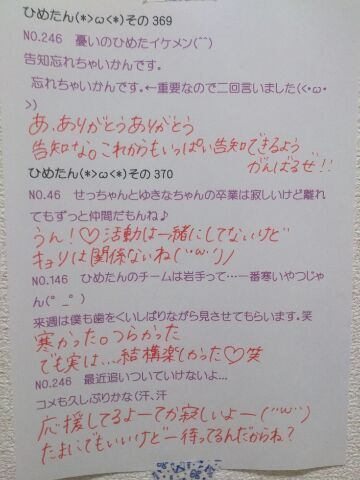 ひめたん(*>ω<*)その369
NO.246　憂いのひめたイケメン(⌒⌒)
告知忘れちゃいかんです。
忘れちゃいかんです。←重要なので二回言いました(<・ω・
>)
あ、ありがとうありがとう
告知な。これからもいっぱい告知できるよう
がんばるぜ!!
ひめたん(*>ω<*)その370
NO.46　せっちゃんとゆきなちゃんの卒業は寂しいけど離れ
てもずっと仲間だもんね♪
うん!♡活動は一緒にしてないけど
キョリは関係ないね(¨ω¨)ノ
NO.146　ひめたんのチームは岩手って…一番寒いやつじゃ
ん(゜_゜)
来週は僕も歯をくいしばりながら見させてもらいます。笑
寒かった。つらかった
でも実は…結構楽しかった♡笑
NO.246　最近追いついていけないよ…
コメも久しぶりかな(汗、汗
応援してるよーてか寂しいよー(¨ω¨)
たまにでもいいけど一待ってるんだからね?